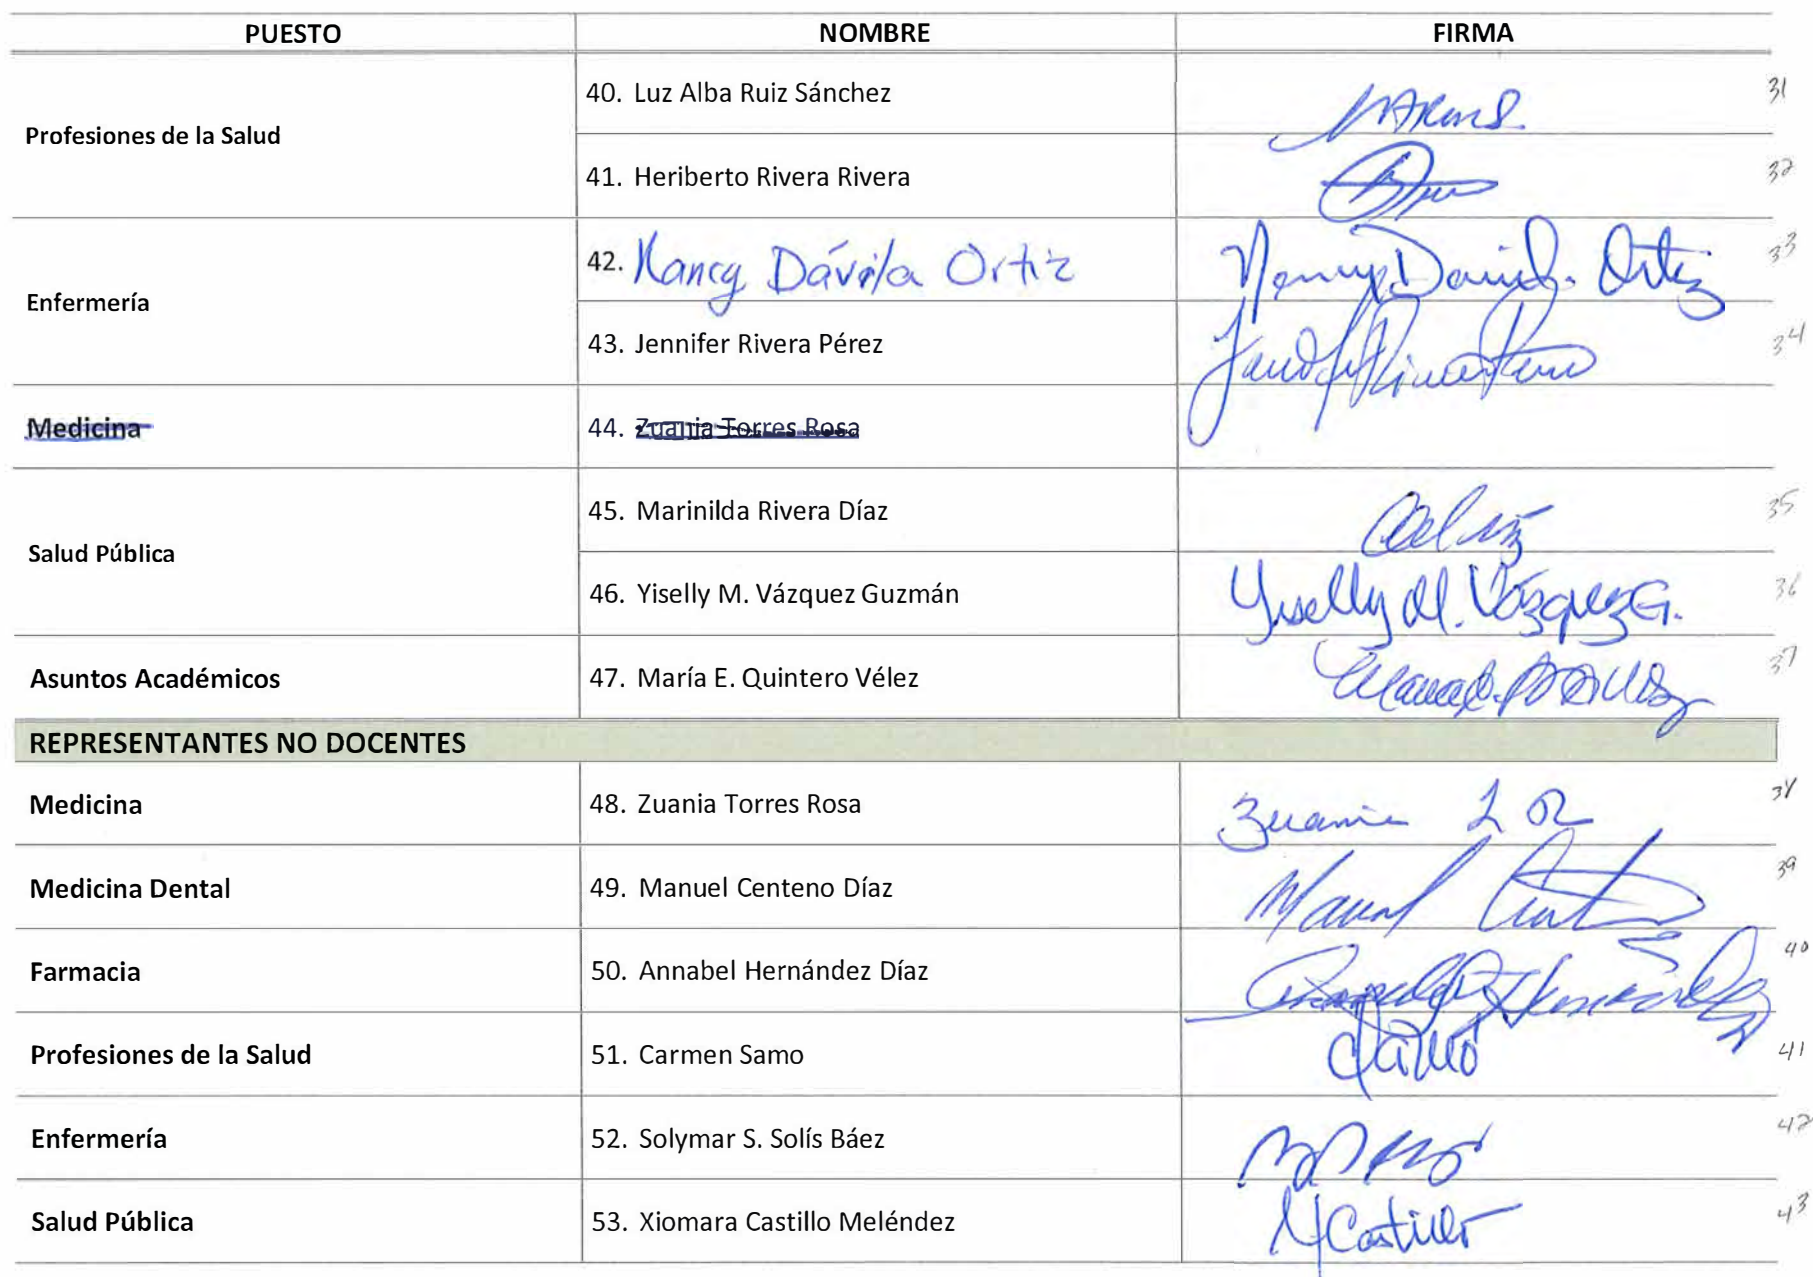 PUESTO NOMBRE FIRMA
Profesiones de la Salud
40. Luz Alba Ruiz Sánchez 31
41. Heriberto Rivera Rivera 32
Enfermería
42. Nancy Dávila Ortiz Nancy Davila Ortiz 33
43. Jennifer Rivera Pérez 34
Medicina 44. Zuania Torres Rosa
Salud Pública
45. Marinilda Rivera Díaz 35
46. Yiselly M. Vázquez Guzmán Yiselly M. Vázquez G. 36
Asuntos Académicos 47. María E. Quintero Vélez 37
REPRESENTANTES NO DOCENTES
Medicina 48. Zuania Torres Rosa Zuania 38
Medicina Dental 49. Manuel Centeno Díaz Manuel 39
Farmacia 50. Annabel Hernández Díaz 40
Profesiones de la Salud 51. Carmen Samo 41
Enfermería 52. Solymar S. Solís Báez 42
Salud Pública 53. Xiomara Castillo Meléndez Castillo 43